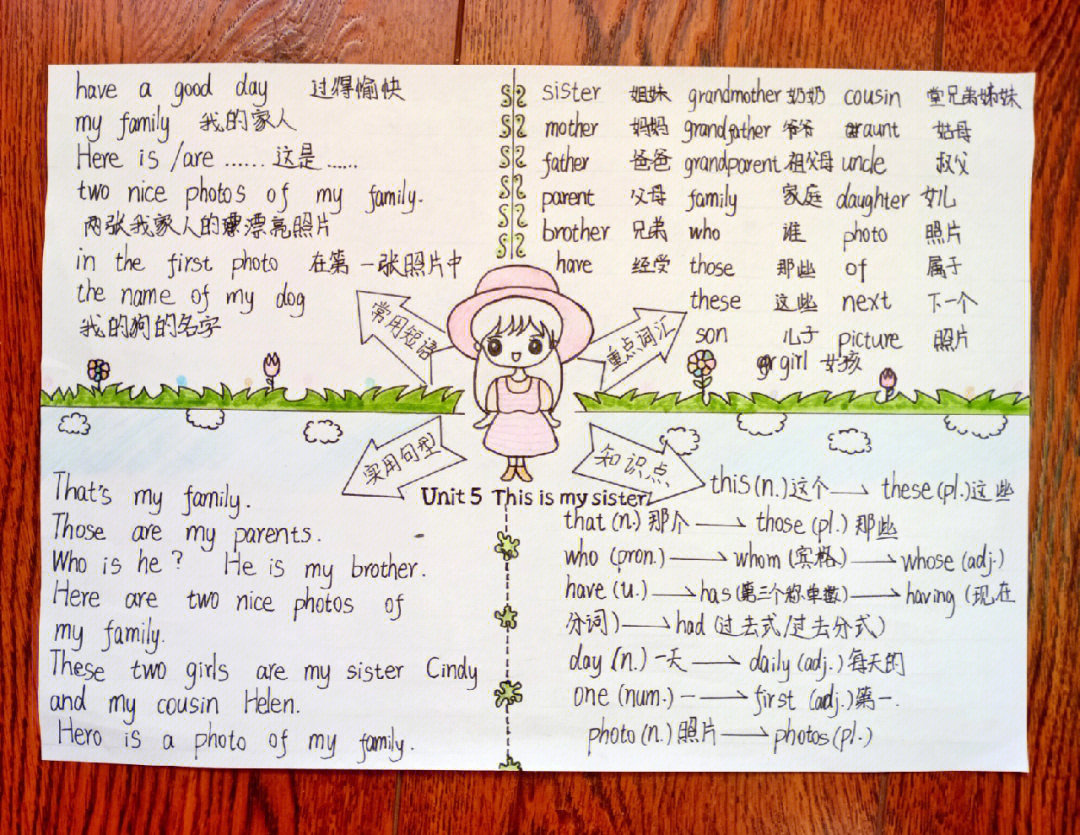 have a good day 过得愉快
my family 我的家人
Here is /are ...... 这是 ......
two nice photos of my family.
两张我家人的漂亮照片
in the first photo 在第一张照片中
the name of my dog
我的狗的名字
常用短语
sister 姐妹 grandmother 奶奶 cousin 堂兄弟姊妹
mother 妈妈 grandfather 爷爷 aunt 姑母
father 爸爸 grandparent 祖父母 uncle 叔父
parent 父母 family 家庭 daughter 女儿
brother 兄弟 who 谁 photo 照片
have 经受 those 那些 of 属于
these 这些 next 下一个
son 儿子 picture 照片
girl 女孩
重点词汇
实用句型
That's my family.
Those are my parents.
Who is he? He is my brother.
Here are two nice photos of
my family.
These two girls are my sister Cindy
and my cousin Helen.
Hero is a photo of my family.
Unit 5 This is my sister.
知识点
this (n.) 这个 → these (pl.) 这些
that (n.) 那个 → those (pl.) 那些
who (pron.) → whom (宾格) → whose (adj.)
have (u.) → has (第三个单数) → having (现在
分词) → had (过去式/过去分式)
day (n.) 一天 → daily (adj.) 每天的
one (num.) 一 → first (adj.) 第一.
photo (n.) 照片 → photos (pl.)